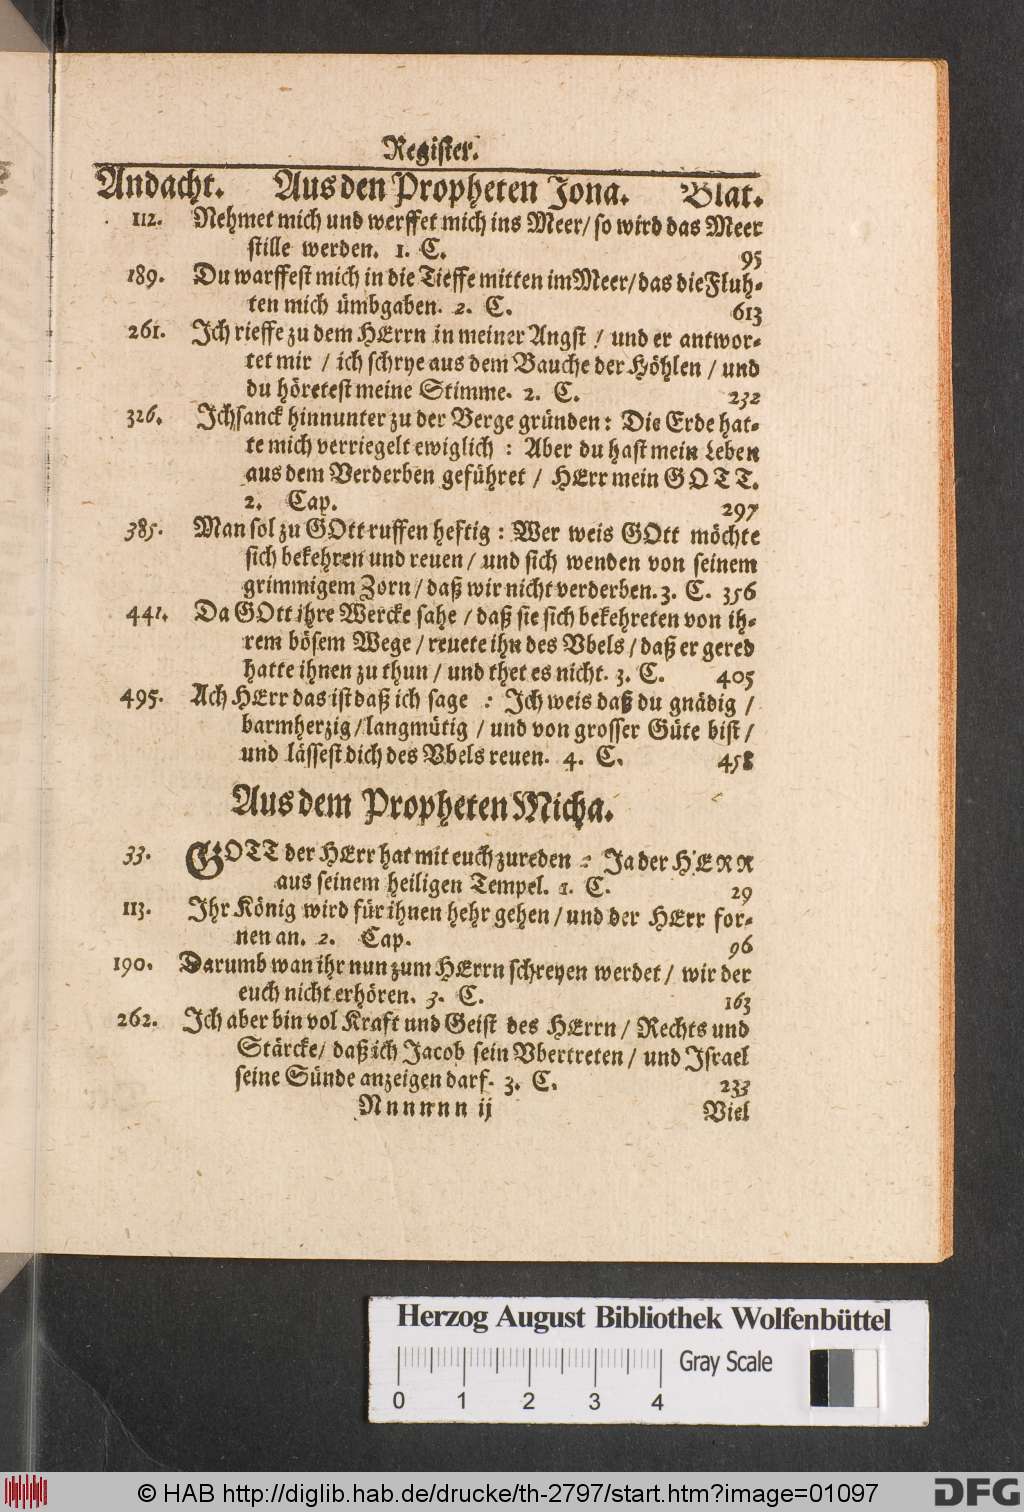 Register.
Andacht. Aus den Propheten Jona. Blat.
112. Nehmet mich und werffet mich ins Meer/ so wird das Meer
stille werden. 1. C. 95
189. Du warffest mich in die Tieffe mitten im Meer/ das die Fluh-
ten mich ümbgaben. 2. C. 613
261. Ich rieffe zu dem HErrn in meiner Angst / und er antwor-
tet mir / ich schrye aus dem Bauche der Höhlen / und
du höretest meine Stimme. 2. C. 232
326. Ich sanck hinnunter zu der Berge gründen: Die Erde hat-
te mich verriegelt ewiglich : Aber du hast mein Leben
aus dem Verderben geführet / HErr mein GOTT.
2. Cap. 297
385. Man sol zu GOtt ruffen heftig : Wer weis GOtt möchte
sich bekehren und reuen / und sich wenden von seinem
grimmigem Zorn / daß wir nicht verderben. 3. C. 356
441. Da GOtt ihre Wercke sahe / daß sie sich bekehreten von ih-
rem bösem Wege / reuete ihn des Vbels / daß er gered
hatte ihnen zu thun / und thet es nicht. 3. C. 405
495. Ach HErr das ist daß ich sage : Ich weis daß du gnädig /
barmherzig / langmütig / und von grosser Güte bist /
und lässest dich des Vbels reuen. 4. C. 458
Aus dem Propheten Micha.
33. GOTT der HErr hat mit euch zureden : Ja der HERR
aus seinem heiligen Tempel. 1. C. 29
113. Ihr König wird für ihnen hehr gehen / und der HErr for-
nen an. 2. Cap. 96
190. Darumb wan ihr nun zum HErrn schreyen werdet / wir der
euch nicht erhören. 3. C. 163
262. Ich aber bin vol Kraft und Geist des HErrn / Rechts und
Stärcke/ daß ich Jacob sein Vbertreten / und Israel
seine Sünde anzeigen darf. 3. C. 233
Nnnnnn ij Viel
Herzog August Bibliothek Wolfenbüttel
Gray Scale
0 1 2 3 4
© HAB http://diglib.hab.de/drucke/th-2797/start.htm?image=01097
DFG